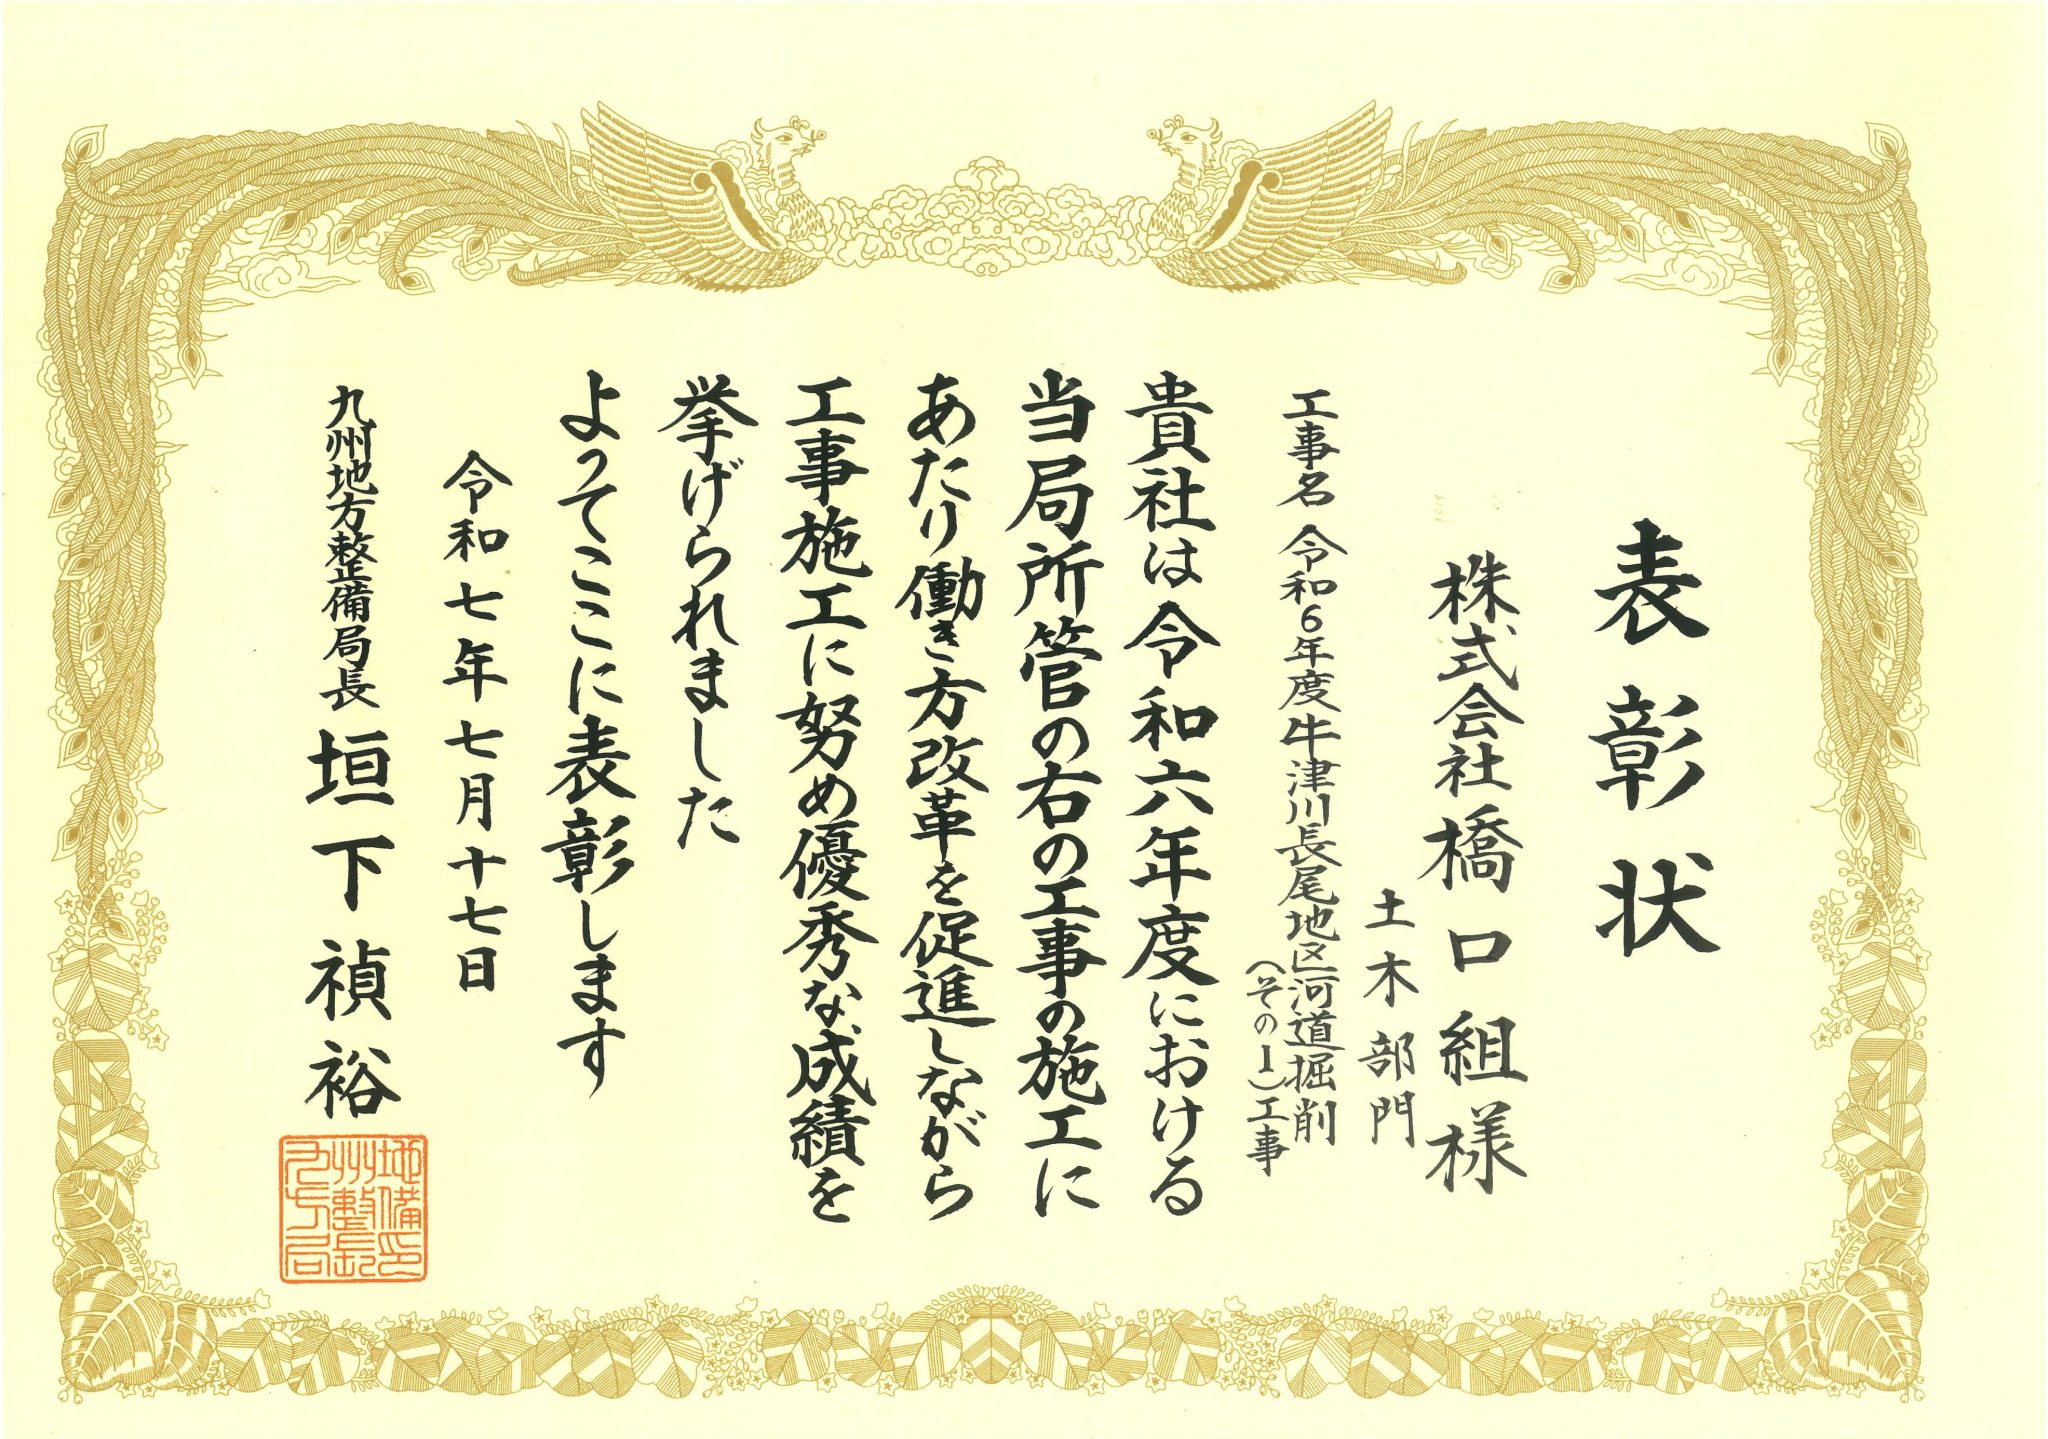 表彰状
株式会社橋口組様
土木部門
工事名 令和6年度牛津川長尾地区河道掘削
(その1)工事
貴社は令和六年度における
当局所管の右の工事の施工に
あたり働き方改革を促進しながら
工事施工に努め優秀な成績を
挙げられました
よってここに表彰します
令和七年七月十七日
九州地方整備局長 垣下禎裕
九州地方整備局長印